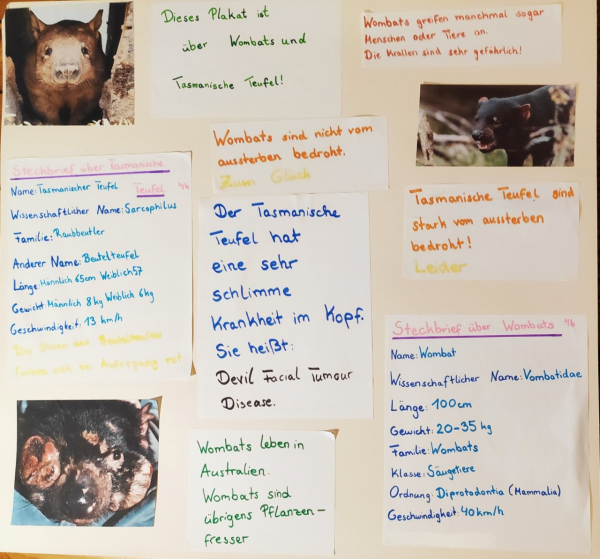 Dieses Plakat ist
über Wombats und
Tasmanische Teufel!
Wombats greifen manchmal sogar
Menschen oder Tiere an.
Die Krallen sind sehr gefährlich!
Wombats sind nicht vom
aussterben bedroht.
Zum Glück
Steckbrief über Tasmanische
Teufel
Name: Tasmanischer Teufel
Wissenschaftlicher Name: Sarcophilus
Familie: Raubbeutler
Anderer Name: Beutelteufel
Länge: Männlich 65cm Weiblich 57
Gewicht: Männlich 8kg Weiblich 6kg
Geschwindigkeit: 13 km/h
Die Ohren des Beutelteufels
färben sich vor Aufregung rot.
Der Tasmanische
Teufel hat
eine sehr
schlimme
Krankheit im Kopf.
Sie heißt:
Devil Facial Tumour
Disease.
Tasmanische Teufel sind
stark vom aussterben
bedroht!
Leider
Steckbrief über Wombats
Name: Wombat
Wissenschaftlicher Name: Vombatidae
Länge: 100cm
Gewicht: 20-35 kg
Familie: Wombats
Klasse: Säugetiere
Ordnung: Diprotodontia (Mammalia)
Geschwindigkeit: 40 km/h
Wombats leben in
Australien.
Wombats sind
übrigens Pflanzen-
fresser